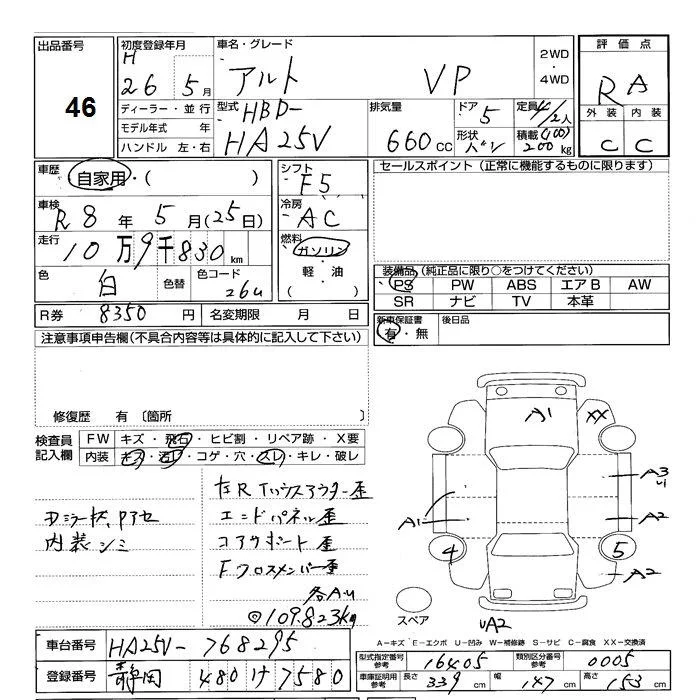 出品番号
46
初度登録年月
H
26年 5月
車名・グレード
アルト VP
2WD
・
4WD
評価点
RA
外装 内装
C C
ディーラー・並行
モデル年式 年
ハンドル 左・右
型式 HBD-
HA25V
排気量
660cc
ドア 5
形状 バン
定員 4/2人
積載 (100)
200kg
車歴
自家用・( )
車検
R8年5月(25日)
走行
10万9千830km
色
白
色替
色コード
26U
シフト
F5
冷房
AC
燃料
ガソリン
軽・油
( )
セールスポイント(正常に機能するものに限ります)
装備品(純正品に限り○をつけてください)
PS PW ABS エアB AW
SR ナビ TV 本革
R券 8350円 名変期限 月 日
新車保証書
有・無
後日品
注意事項申告欄(不具合内容等は具体的に記入して下さい)
修復歴 有〔箇所
検査員
記入欄
FW キズ・飛石・ヒビ割・リペア跡・X要
内装 キズ・汚レ・コゲ・穴・スレ・キレ・破レ
内装シミ
エンドパネル歪
コアサポート歪
Fクロスメンバー歪
各AU
◎109.823kg
A1
XX
A3
U
A1
A2
4
5
A2
スペア
UA2
A−キズ E−エクボ U−凹み W−補修跡 S−サビ C−腐食 XX−交換済
車台番号 HA25V-768295
登録番号 静岡 480 け 7580
型式指定番号
参考
16405
類別区分番号
参考
0005
車庫証明用
参考
長さ 339cm 幅 147cm 高さ 153cm